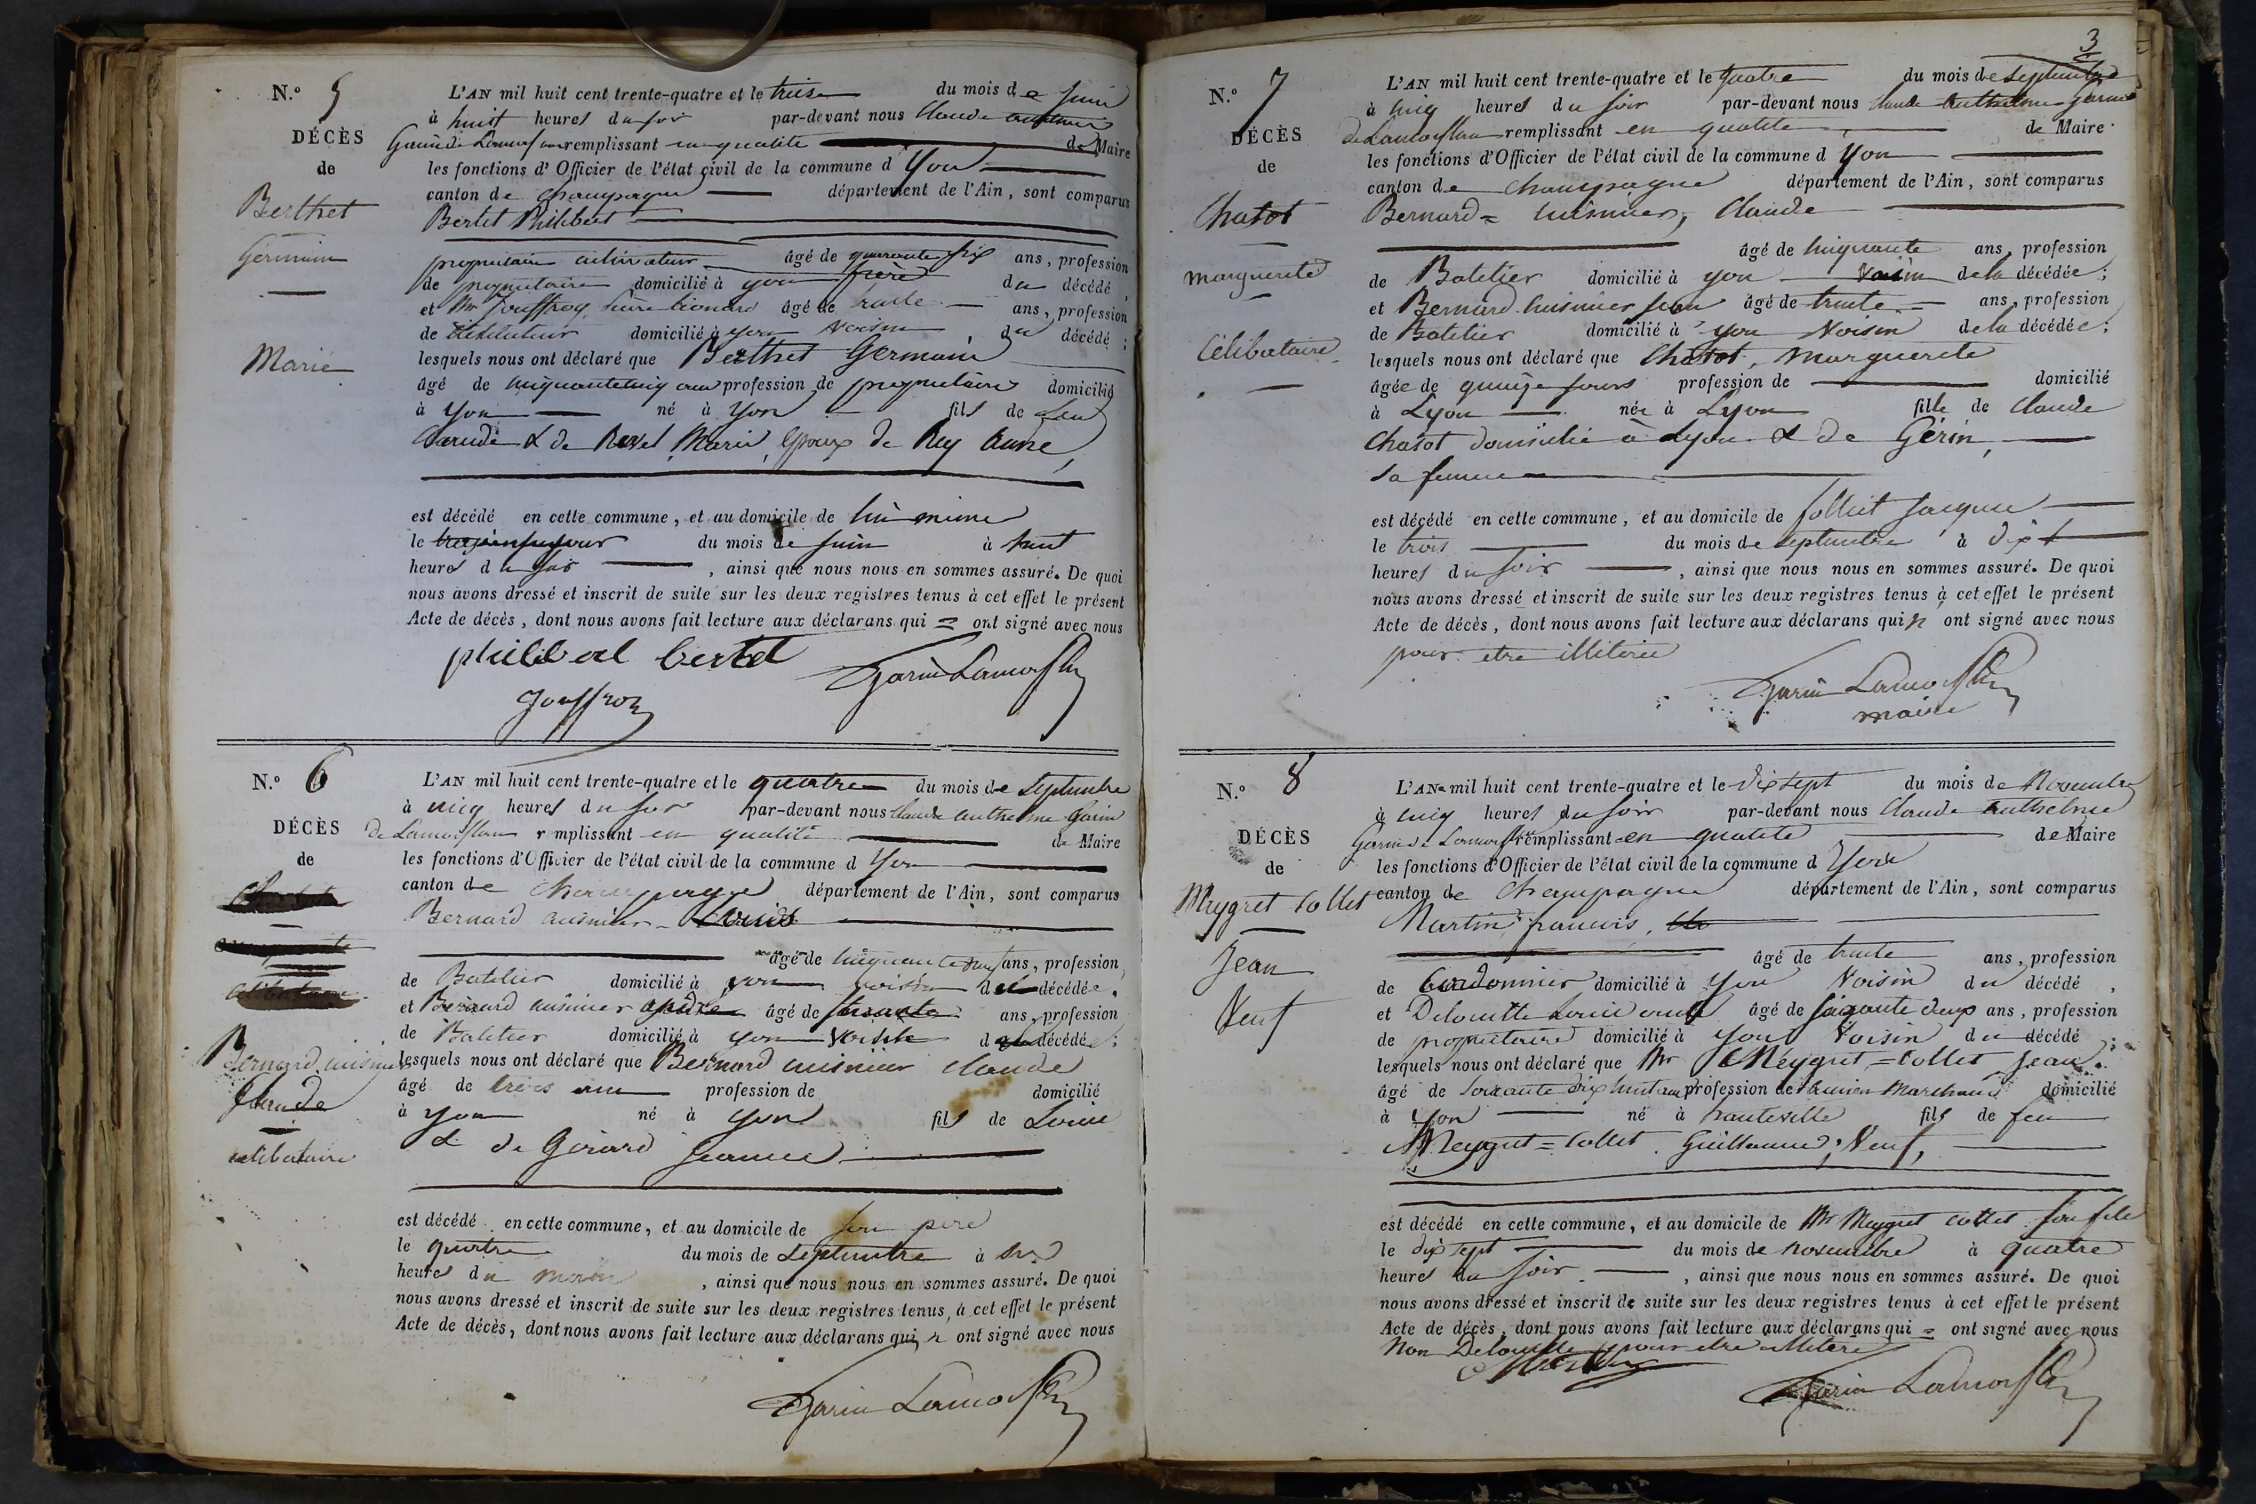 N.° 5
DÉCÈS
de
Berthet
Germain
Marié
L'AN mil huit cent trente-quatre et le treise du mois de juin
à huit heures du soir par-devant nous Claude anthelme
Garin de Lamorflan remplissant en qualité de Maire
les fonctions d'Officier de l'état civil de la commune d' Yon
canton de Champagne département de l'Ain, sont comparus
Bertet Philibert
propriétaire cultivateur âgé de quarante six ans, profession
de propriétaire domicilié à yon frère du décédé,
et Mr Jouffroy âgé de trente ans, profession
de domicilié à yon voisin du décédé;
lesquels nous ont déclaré que Berthet Germain
âgé de cinquante cinq ans profession de propriétaire domicilié
à Yon né à Yon fils de feu
Claude & de Revel Marie, Epoux de Rey Anne,
est décédé en cette commune, et au domicile de lui même
le du mois de juin à huit
heures du soir, ainsi que nous nous en sommes assuré. De quoi
nous avons dressé et inscrit de suite sur les deux registres tenus à cet effet le présent
Acte de décès, dont nous avons fait lecture aux déclarans qui = ont signé avec nous
philibert bertet Garin Lamorflan
Jouffroy
N.° 6
DÉCÈS
de
Bernard cuisinier
Claude
célibataire
L'AN mil huit cent trente-quatre et le quatre du mois de Septembre
à cinq heures du soir par-devant nous Claude anthelme Garin
de Lamorflan remplissant en qualité de Maire
les fonctions d'Officier de l'état civil de la commune d Yon
canton de Champagne département de l'Ain, sont comparus
Bernard cuisinier Louis
âgé de cinquante ans, profession
de Batelier domicilié à yon voisin décédé,
et Bernard cuisinier andré âgé de ans, profession
de Batelier domicilié à yon voisin décédé;
lesquels nous ont déclaré que Bernard cuisinier Claude
âgé de trois ans profession de domicilié
à yon né à yon fils de Louis
& de Girard Jeanne
est décédé en cette commune, et au domicile de son père
le quatre du mois de Septembre à
heures du matin, ainsi que nous nous en sommes assuré. De quoi
nous avons dressé et inscrit de suite sur les deux registres tenus, à cet effet le présent
Acte de décès, dont nous avons fait lecture aux déclarans qui n ont signé avec nous
Garin Lamorflan
3
N.° 7
DÉCÈS
de
Chatot
marguerite
Célibataire
L'AN mil huit cent trente-quatre et le quatre du mois de septembre
à cinq heures du soir par-devant nous Claude anthelme Garin
de Lamorflan remplissant en qualité de Maire
les fonctions d'Officier de l'état civil de la commune d Yon
canton de Champagne département de l'Ain, sont comparus
Bernard = cuisinier, Claude
âgé de cinquante ans, profession
de Batelier domicilié à yon voisin de la décédée;
et Bernard cuisinier Jean âgé de trente ans, profession
de Batelier domicilié à yon Voisin de la décédée;
lesquels nous ont déclaré que Chatot, Marguerite
âgée de quinze jours profession de domicilié
à Lyon née à Lyon fille de Claude
Chatot domicilié à Lyon & de Gérin,
sa femme
est décédé en cette commune, et au domicile de Jolliet Jacques
le trois du mois de septembre à dix
heures du soir, ainsi que nous nous en sommes assuré. De quoi
nous avons dressé et inscrit de suite sur les deux registres tenus à cet effet le présent
Acte de décès, dont nous avons fait lecture aux déclarans qui n ont signé avec nous
pour etre illiterés
Garin Lamorflan
maire
N.° 8
DÉCÈS
de
Meygret Collet
Jean
Veuf
L'AN mil huit cent trente-quatre et le dix sept du mois de Novembre
à cinq heures du soir par-devant nous Claude Anthelme
Garin de Lamorflan remplissant en qualité de Maire
les fonctions d'Officier de l'état civil de la commune d Yon
canton de Champagne département de l'Ain, sont comparus
Martin francois,
âgé de trente ans, profession
de Cordonnier domicilié à Yon Voisin du décédé,
et Delouille âgé de soixante deux ans, profession
de propriétaire domicilié à Yon Voisin du décédé;
lesquels nous ont déclaré que Mr Meygret = Collet Jean
âgé de soixante dix huit ans profession de ancien Marchand domicilié
à Yon né à hauteville fils de feu
Meygret = Collet Guillaume, Veuf,
est décédé en cette commune, et au domicile de Mr Meygret Collet son fils
le dix sept du mois de novembre à quatre
heures du soir, ainsi que nous nous en sommes assuré. De quoi
nous avons dressé et inscrit de suite sur les deux registres tenus à cet effet le présent
Acte de décès, dont nous avons fait lecture aux déclarans qui = ont signé avec nous
Non Delouille pour etre illiteré
Martin Garin Lamorflan